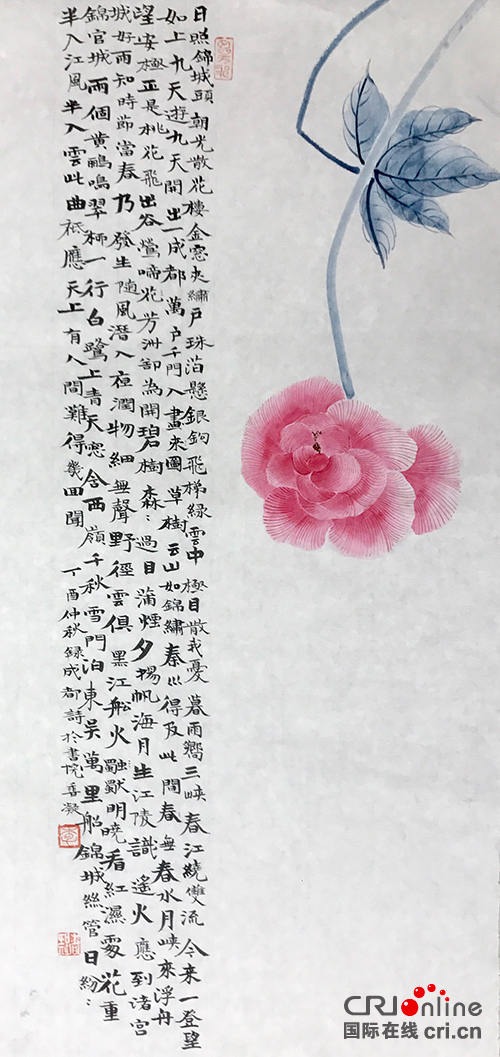 日照錦城頭朝光散花樓金窓夾繡戶珠箔懸銀鉤飛梯緑雲中極目散我憂暮雨嚮三峽春江繞雙流今来一登望
如上九天遊九天開出一成都萬户千門入畫来圖草樹云山如錦繡秦川得及此間春無春水月峽來浮舟
望安極正是桃花飛出谷鶯啼花芳洲卻為開碧樹森:過目蒲煙夕揚帆海月生江陵識遙火應到渚宮
城好雨知時節當春乃發生隨風潛入夜潤物細無聲野徑雲俱黑江船火獨明曉看紅濕處花重
錦官城兩個黃鸝鳴翠柳一行白鷺上青天窓含西嶺千秋雪門泊東吳萬里船錦城絲管日紛:
半入江風半入雲此曲祗應天上有人間難得幾回聞 丁酉仲秋録成都詩於書院喜凝
CRIonline
国际在线 cri.cn